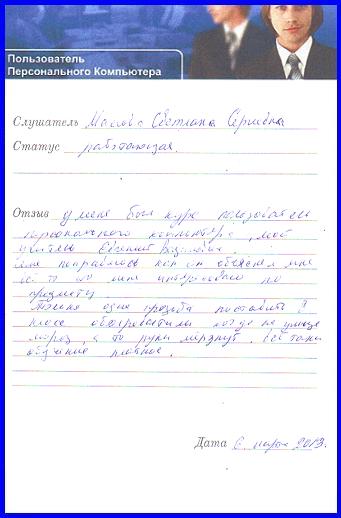 Пользователь
Персонального Компьютера
Слушатель Маслова Светлана Сергеевна
Статус работающая
Отзыв у меня был курс пользователь
персонального компьютера, мой
учитель Евгений
мне понравилось как он объяснял мне
всё то что меня интересовало по
предмету.
одна просьба поставить в
классе обогреватели когда на улице
мороз, а то руки мёрзнут. Всё таки
обучение платное.
Дата 6 марта 2013.